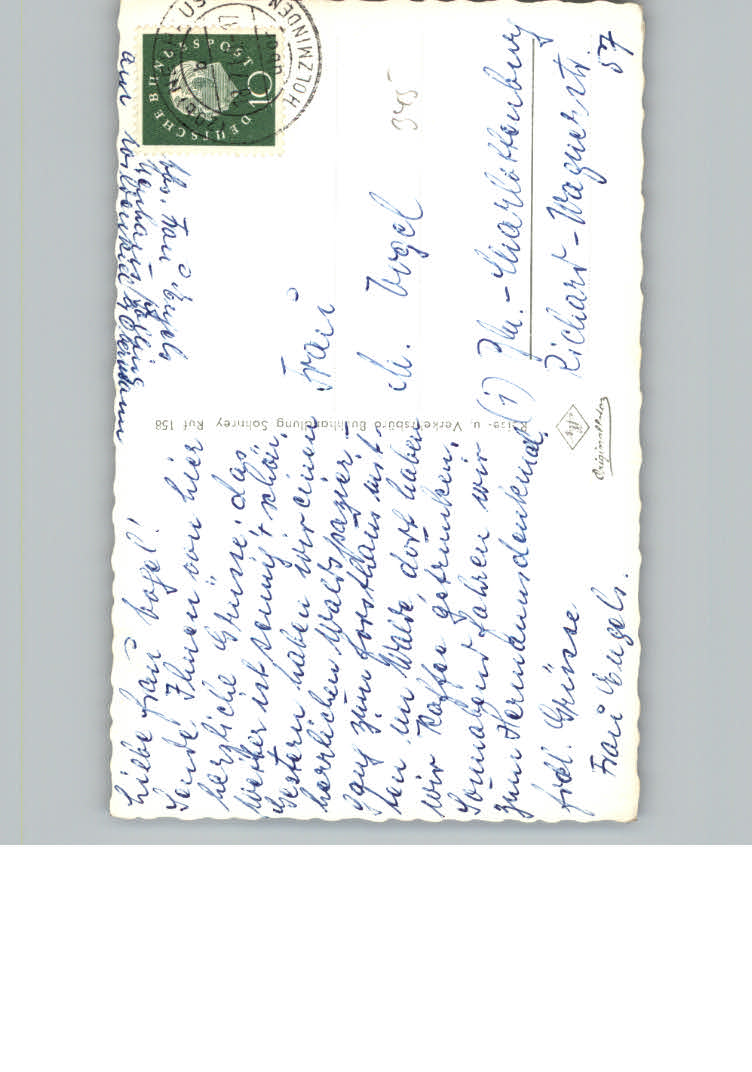 Liebe Frau Vogel!
Sende Ihnen von hier
herzliche Grüsse, das
Wetter ist sonnig + schön.
Gestern haben wir einen
herrlichen Waldspazier-
gang zum Forsthaus mit
ten im Walde, dort haben
wir Kaffee getrunken.
Sonnabend fahren wir
zum Hermannsdenkmal.
frdl. Grüsse
Frau Engels.
Abs. Frau Engels
Neuhaus / Solling
Reise- u. Verkehrsbüro Buchhandlung Sohnrey Ruf 158
DEUTSCHE BUNDESPOST
10
HOLZMINDEN
345
Frau
M. Vogel
(1) Bln.-Charlottenburg
Richard-Wagnerstr.
57
Originalfoto